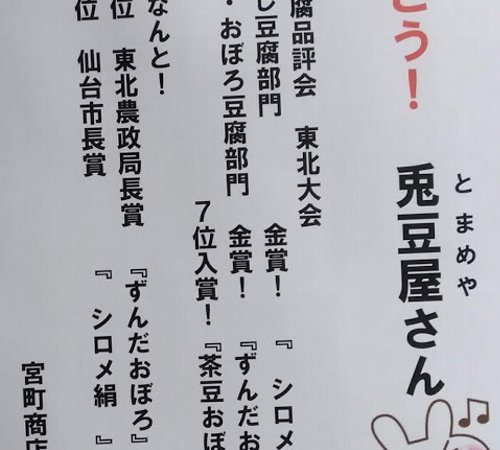 とう！
とまめや
兎豆屋さん
腐品評会 東北大会
し豆腐部門 金賞！ 『 シロメ
・おぼろ豆腐部門 金賞！ 『ずんだお
7位入賞！ 『茶豆おぼ
なんと！
位 東北農政局長賞 『ずんだおぼろ』
位 仙台市長賞 『 シロメ絹 』
宮町商店